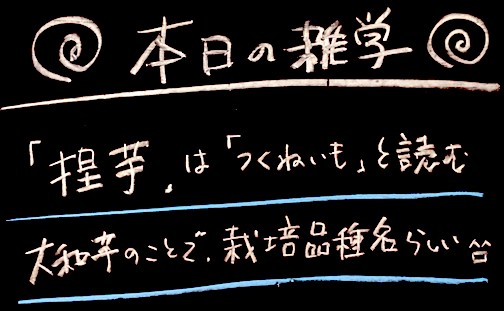 本日の雑学
「捏芋」は「つくねいも」と読む
大和芋のことで、栽培品種名らしい